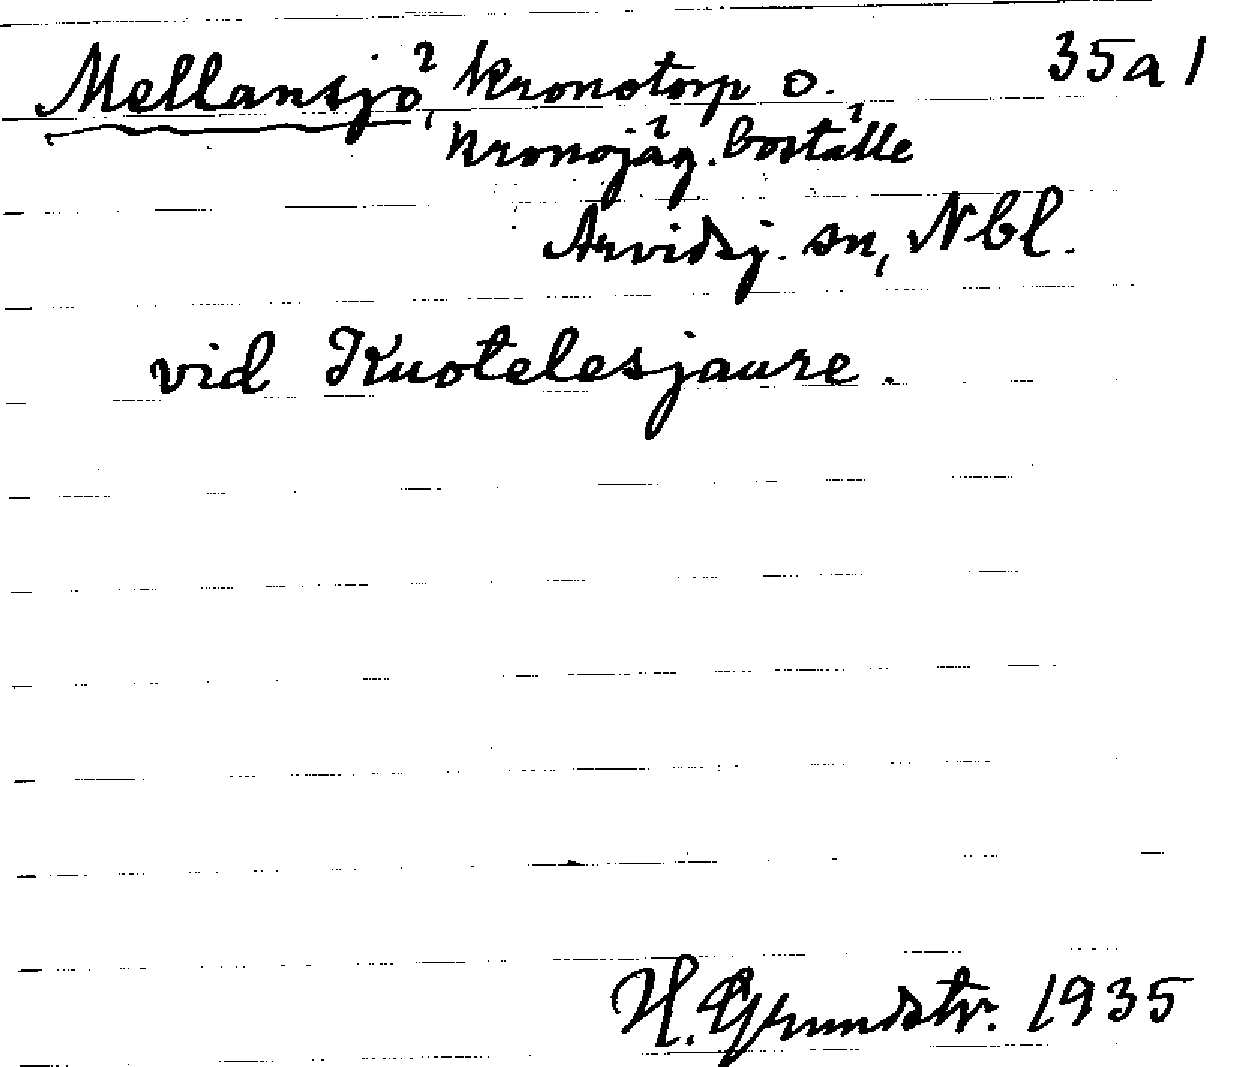 Mellansjö, kronotorp o. 35a1
kronojäg. boställe
Arvidsj. sn, Nbl.
vid Kuotelesjaure.
H. Grundstr. 1935